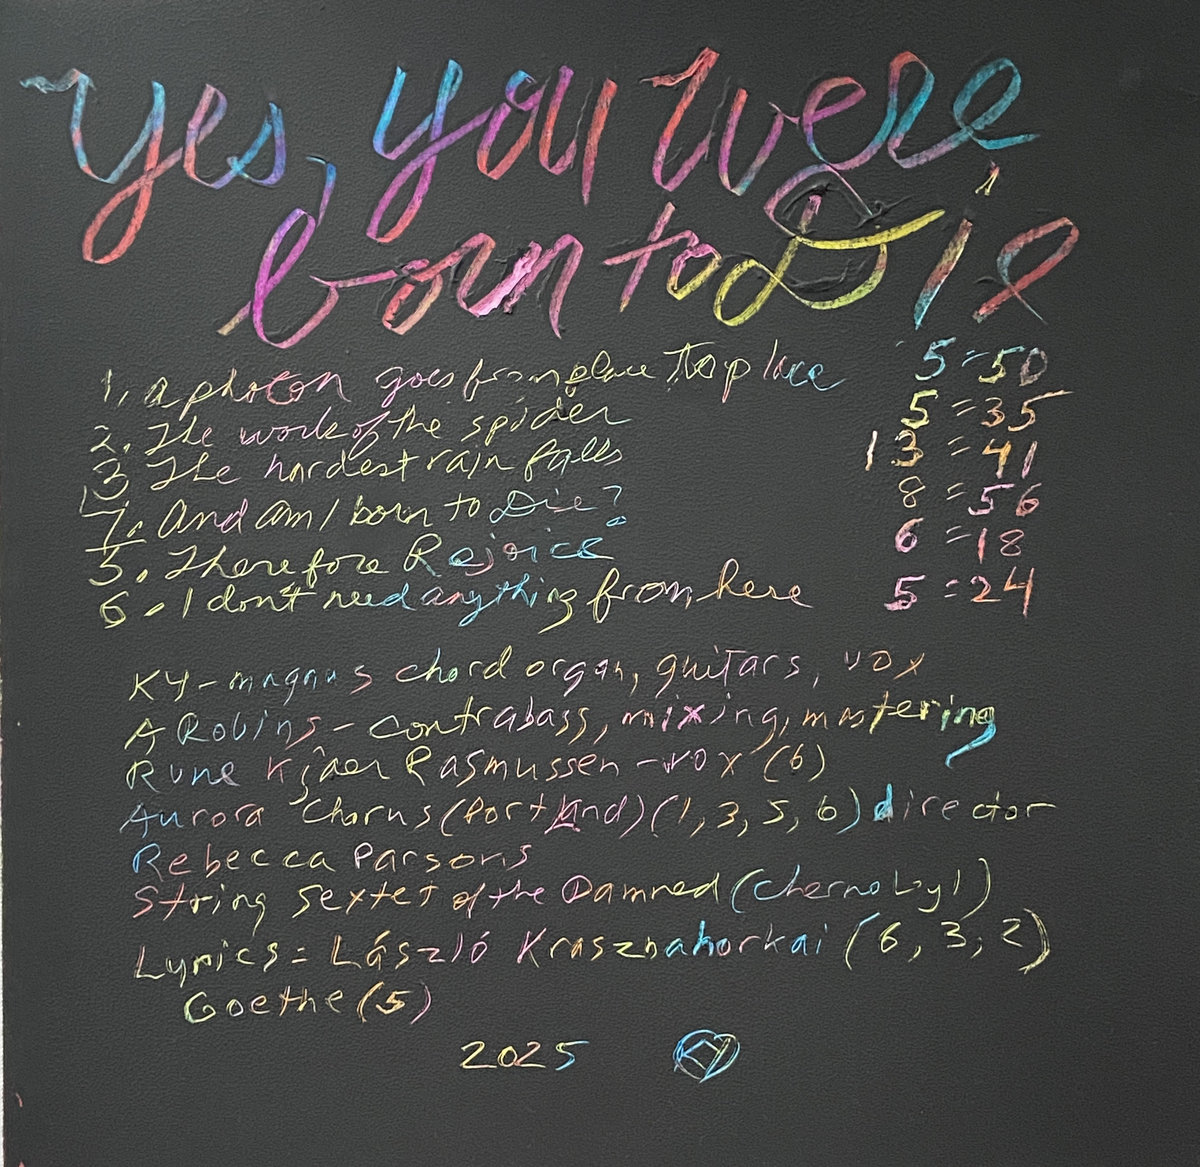 Yes, you were
born to Die
1. a photon goes from place to place 5=50
2. The work of the spider 5=35
3 The hardest rain falls 13=41
7. And am I born to Die? 8=56
5. Therefore Rejoice 6=18
6. I don't need anything from here 5=24
KY-magnus chord organ, guitars, vox
A Robins-contrabass, mixing, mastering
Rune Kjaer Rasmussen-vox (6)
Aurora Chorus (Portland) (1, 3, 5, 6) director
Rebecca Parsons
String Sextet of the Damned (Chernobyl)
Lyrics= László Krasznahorkai (6, 3, 2)
Goethe (5)
2025 KY